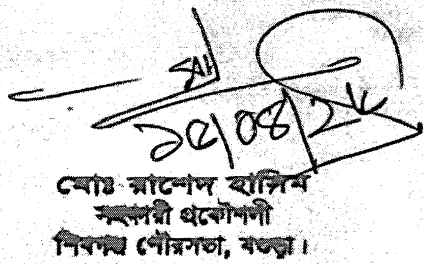 SAH
১৫/০৪/২৮
মোঃ রাশেদ হাসিম
সহকারী প্রকৌশলী
শিবগঞ্জ পৌরসভা, বগুড়া।